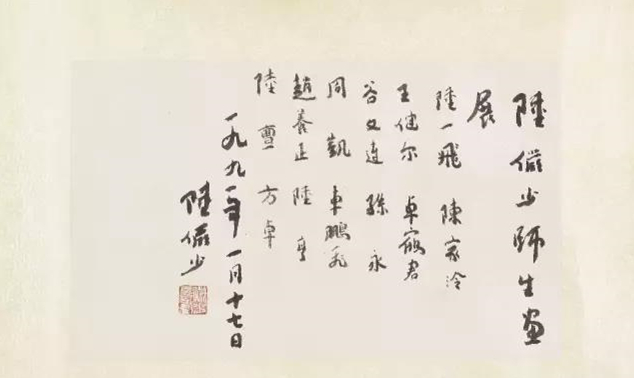 陸儼少師生畫
展
陸一飛 陳家泠
王健尔 卓鶴君
谷文達 孫永
周凱 車鵬飛
趙養正 陸亨
陸 方卓
一九九一年一月十七日
陸儼少